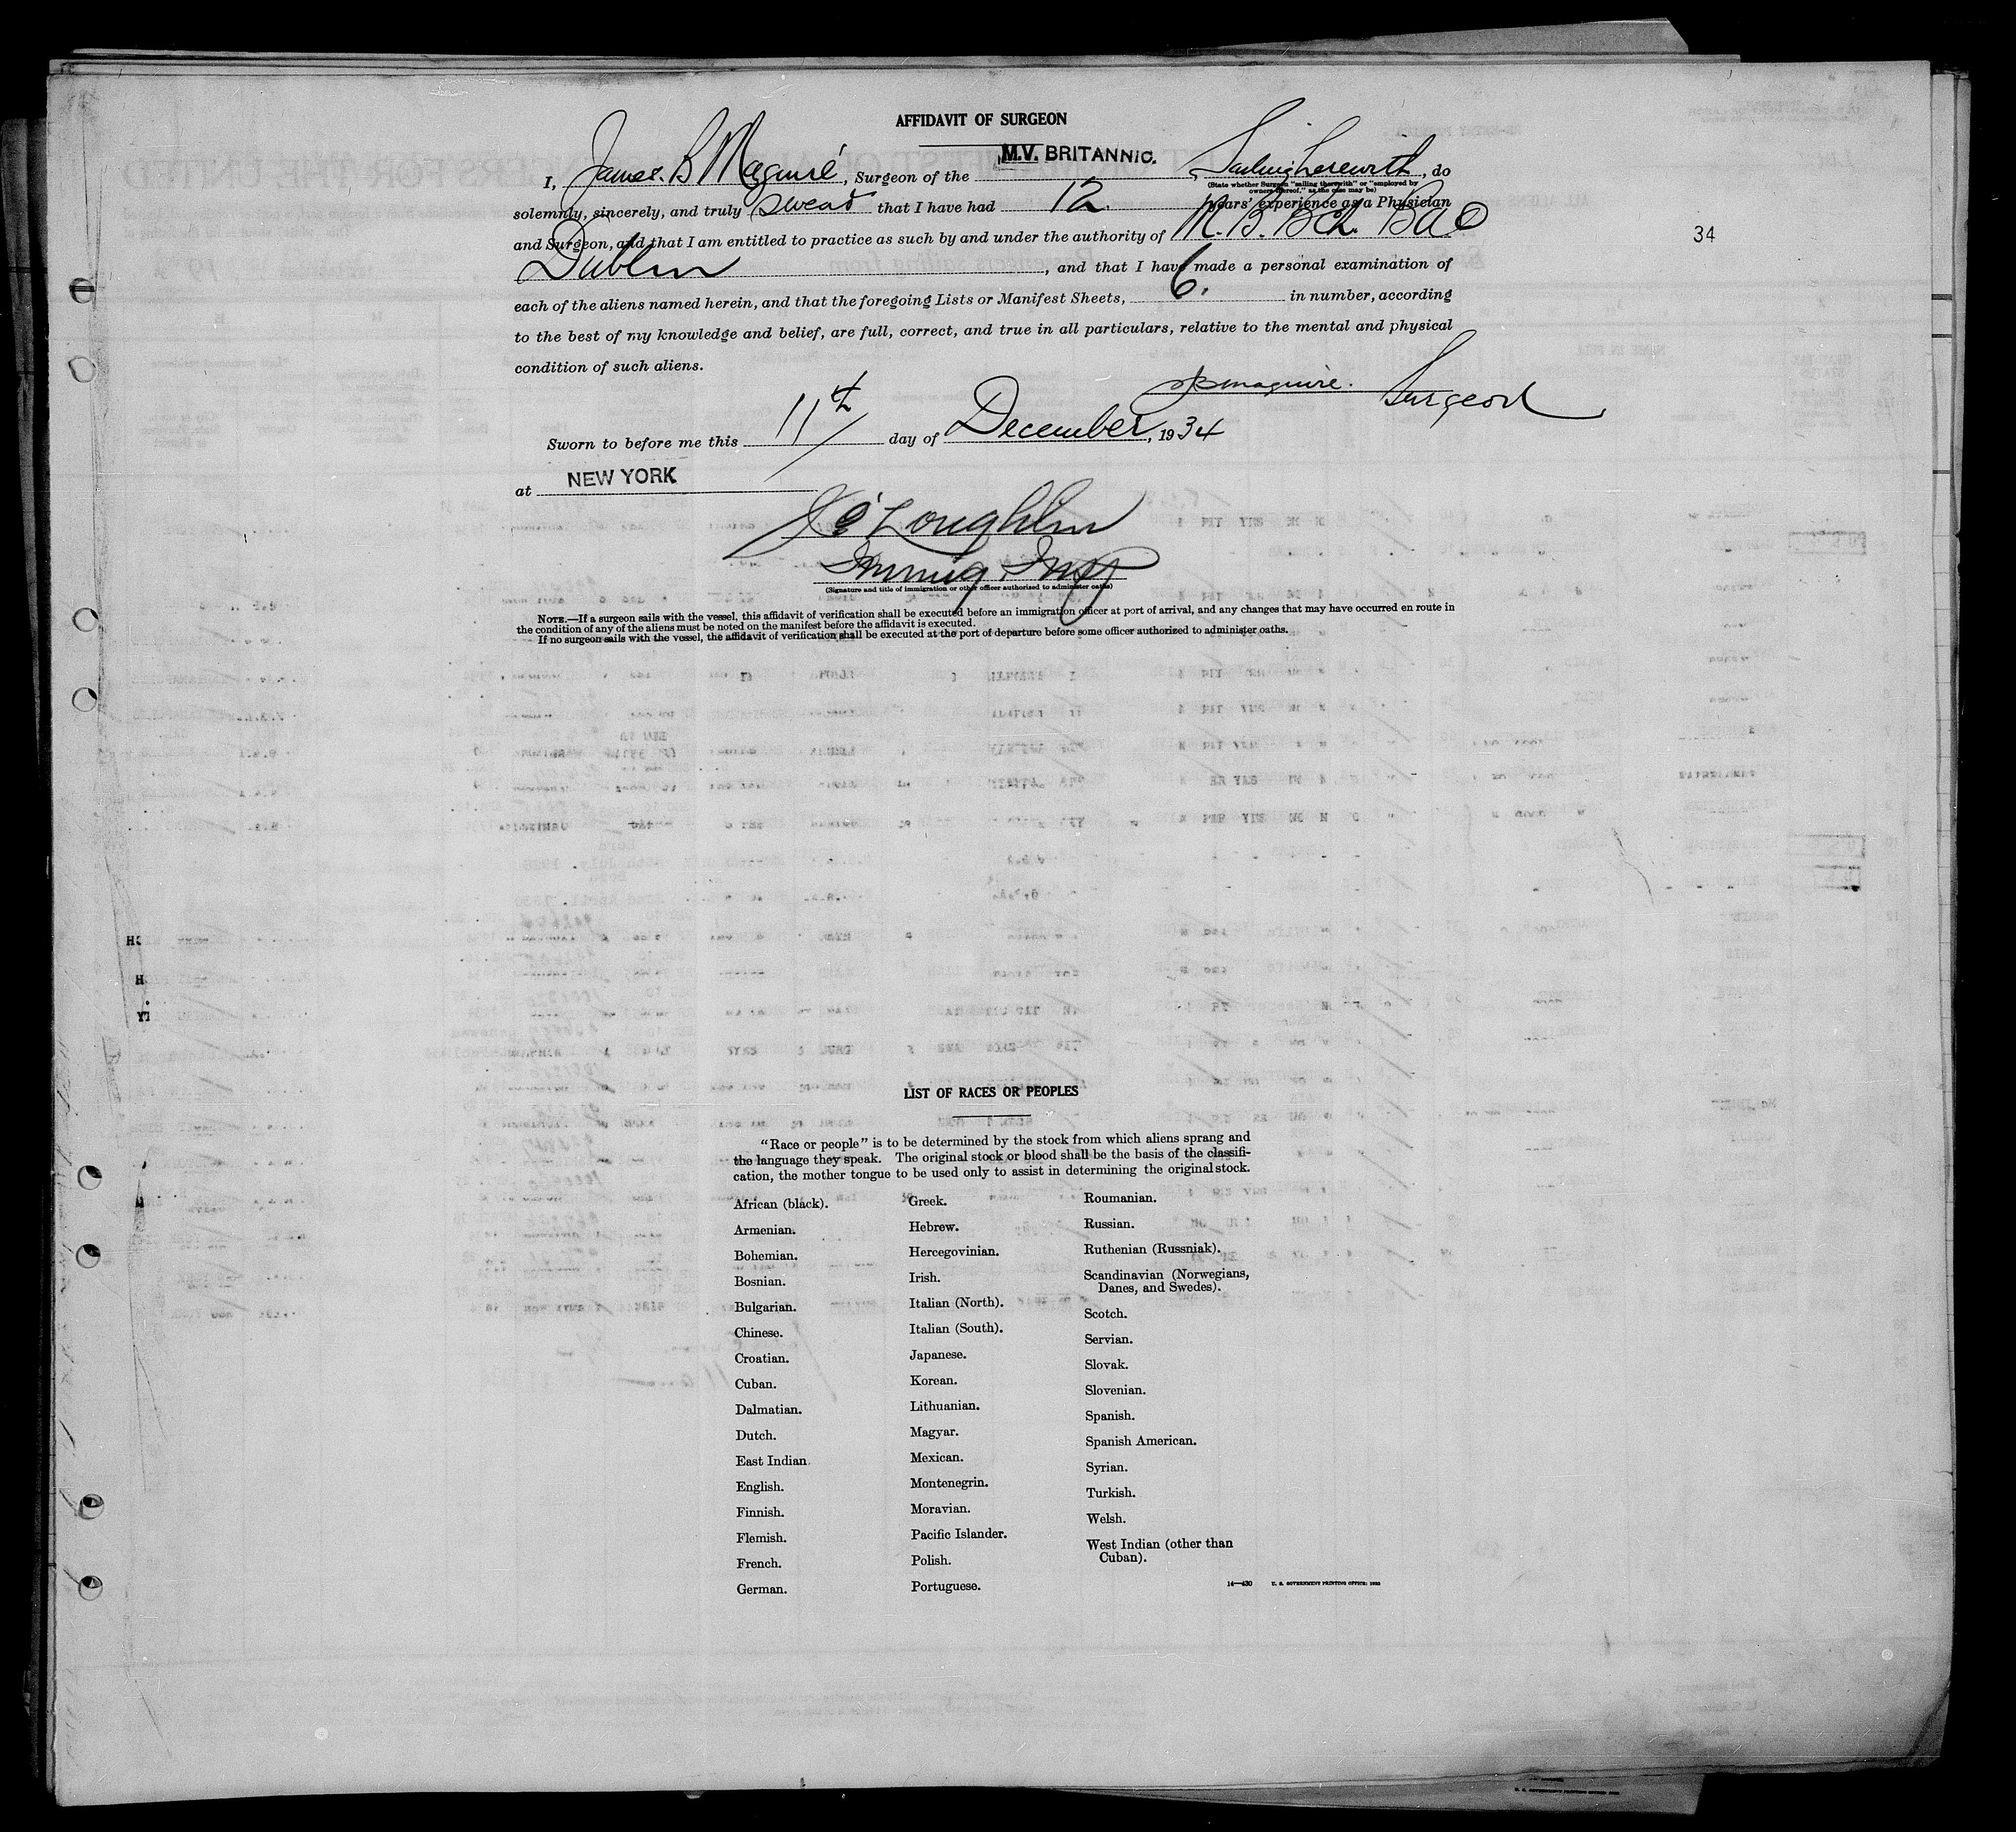 AFFIDAVIT OF SURGEON
I, James. B Maguire, Surgeon of the M.V. BRITANNIC. Sailing herewith, do
(State whether Surgeon "sailing therewith" or "employed by
owners thereof," as the case may be)
solemnly, sincerely, and truly swear that I have had 12. years' experience as a Physician
and Surgeon, and that I am entitled to practice as such by and under the authority of M. B. BCh. BAO
Dublin, and that I have made a personal examination of
each of the aliens named herein, and that the foregoing Lists or Manifest Sheets, 6. in number, according
to the best of my knowledge and belief, are full, correct, and true in all particulars, relative to the mental and physical
condition of such aliens.
JBMaguire. Surgeon
Sworn to before me this 11th day of December, 1934
at NEW YORK
O'Loughlin
Immig Insp
(Signature and title of immigration or other officer authorized to administer oaths)
NOTE.—If a surgeon sails with the vessel, this affidavit of verification shall be executed before an immigration officer at port of arrival, and any changes that may have occurred en route in
the condition of any of the aliens must be noted on the manifest before the affidavit is executed.
If no surgeon sails with the vessel, the affidavit of verification shall be executed at the port of departure before some officer authorized to administer oaths.
34
LIST OF RACES OR PEOPLES
"Race or people" is to be determined by the stock from which aliens sprang and
the language they speak. The original stock or blood shall be the basis of the classifi-
cation, the mother tongue to be used only to assist in determining the original stock.
African (black).
Armenian.
Bohemian.
Bosnian.
Bulgarian.
Chinese.
Croatian.
Cuban.
Dalmatian.
Dutch.
East Indian.
English.
Finnish.
Flemish.
French.
German.
Greek.
Hebrew.
Hercegovinian.
Irish.
Italian (North).
Italian (South).
Japanese.
Korean.
Lithuanian.
Magyar.
Mexican.
Montenegrin.
Moravian.
Pacific Islander.
Polish.
Portuguese.
Roumanian.
Russian.
Ruthenian (Russniak).
Scandinavian (Norwegians,
Danes, and Swedes).
Scotch.
Servian.
Slovak.
Slovenian.
Spanish.
Spanish American.
Syrian.
Turkish.
Welsh.
West Indian (other than
Cuban).
14—430 U. S. GOVERNMENT PRINTING OFFICE: 1933